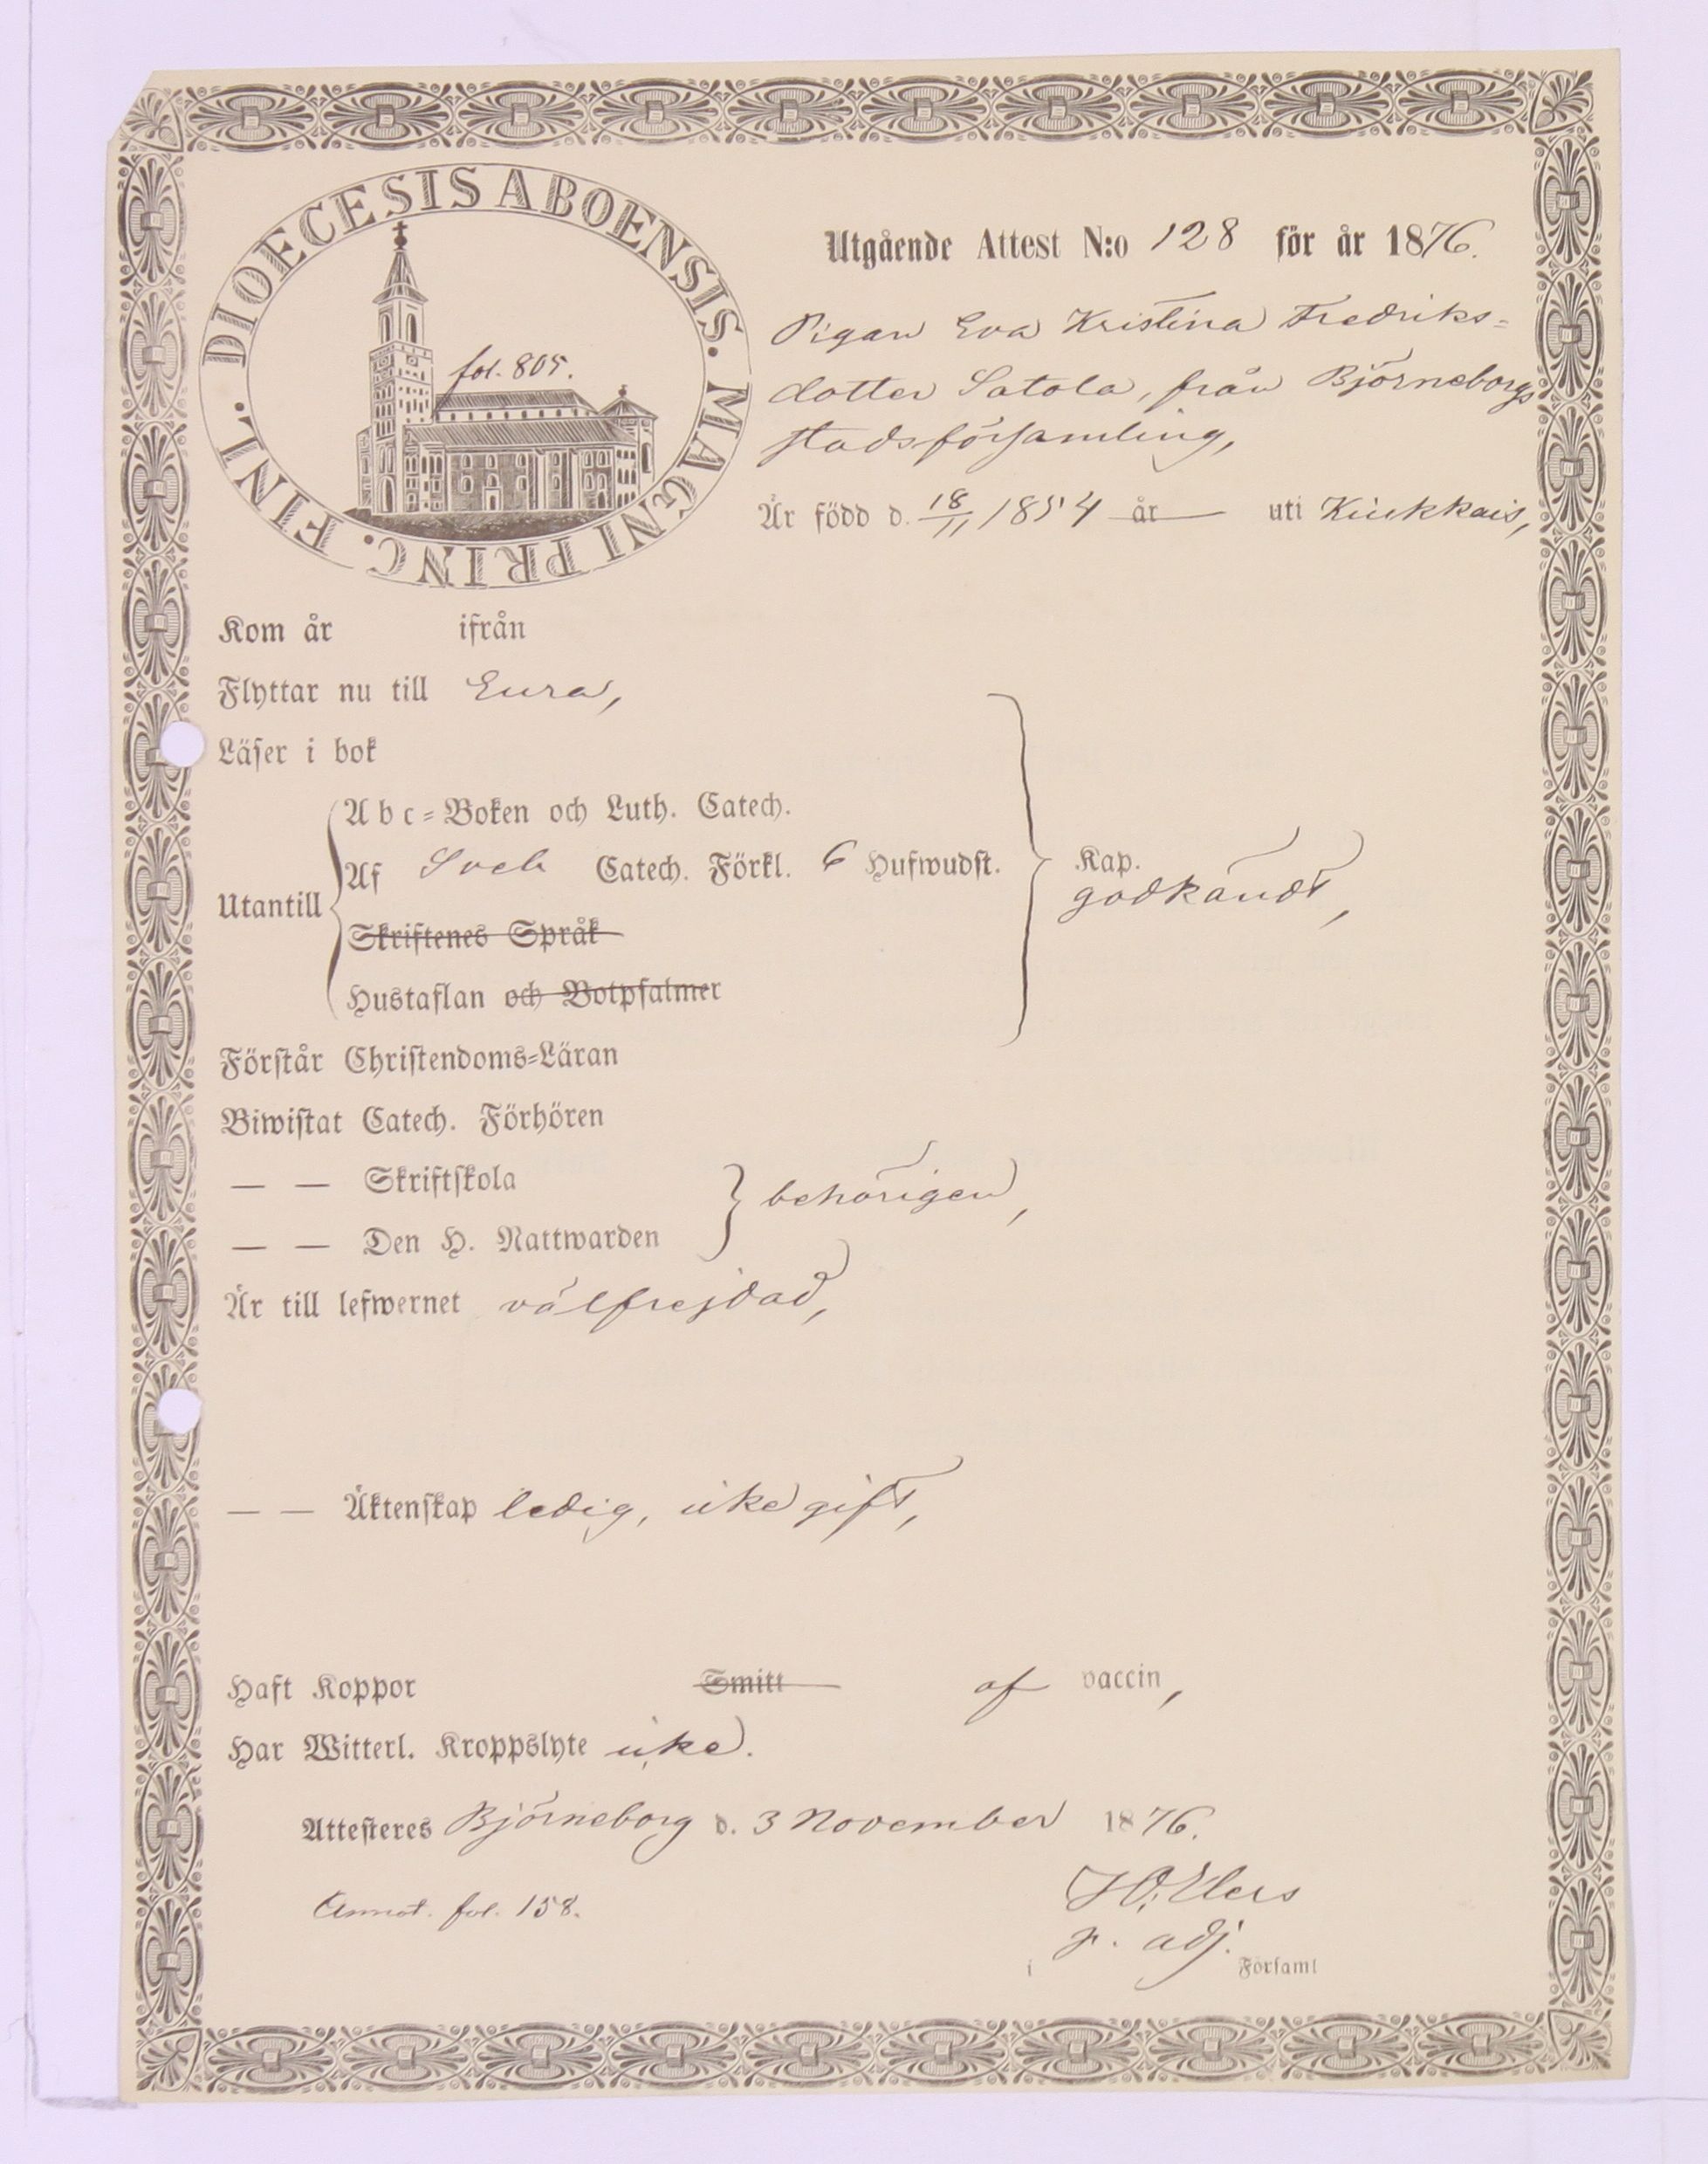 DIOECESIS ABOENSIS. MAGNI PRINC. FINL.
fol. 805.
Utgående Attest N:o 128 för år 1876.
Pigan Eva Kristina Fredriks=
dotter Satola, från Björneborgs
stadsförsamling,
Är född d. 18/11 1854 år uti Kiukkais,
Kom år ifrån
Flyttar nu till Eura,
Läser i bok
Abc=Boken och Luth. Catech.
Utantill Af Sveb Catech. Förkl. 6 Hufwudst. Kap.
godkändt,
Skriftenes Språk
Hustaflan och Botpsalmer
Förstår Christendoms=Läran
Biwistat Catech. Förhören
— — Skriftskola
behörigen,
— — Den H. Nattwarden
Är till lefwernet välfrejdad,
— — Äktenskap ledig, icke gift,
Haft Koppor Smitt af vaccin,
Har Witterl. Kroppslyte icke.
Attesteres Björneborg d. 3 November 1876.
Annot. fol. 158.
adj.
i Församl